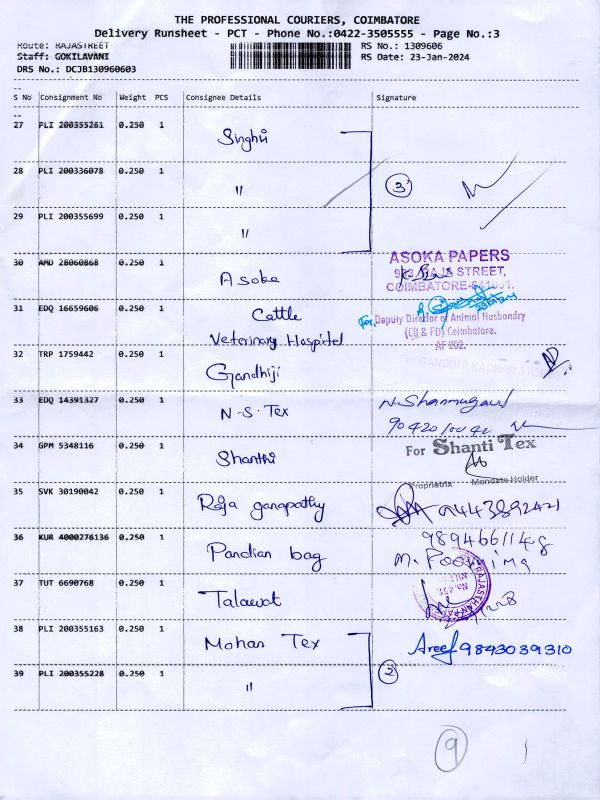 THE PROFESSIONAL COURIERS, COIMBATORE
Delivery Runsheet - PCT - Phone No.:0422-3505555 - Page No.:3
Route: RAJASTREET
RS No.: 1309606
Staff: GOKILAVANI
RS Date: 23-Jan-2024
DRS No.: DCJB130960603
S No Consignment No Weight PCS Consignee Details Signature
27 PLI 200355261 0.250 1 Singhii
28 PLI 200336078 0.250 1 〃 3
29 PLI 200355699 0.250 1 〃
30 AMD 28060868 0.250 1 Asoka
ASOKA PAPERS
RAJA STREET,
COIMBATORE-641001.
31 EDQ 16659606 0.250 1 Cattle
Veterinary Hospital
For Deputy Director of Animal Husbandry
(CB & FD) Coimbatore.
32 TRP 1759442 0.250 1 Gandhiji
33 EDQ 14391327 0.250 1 N-S-Tex
34 GPM 5348116 0.250 1 Shanthi
For Shanti Tex
Proprietrix Mandate Holder
35 SVK 30190042 0.250 1 Raja ganapathy 9443892421
36 KUR 4000276136 0.250 1 Pandian bag
9894661148
M. Poornima
37 TUT 6690768 0.250 1 Talawat
38 PLI 200355163 0.250 1 Mohan Tex Areef 9843039310
39 PLI 200355228 0.250 1 〃 2
9